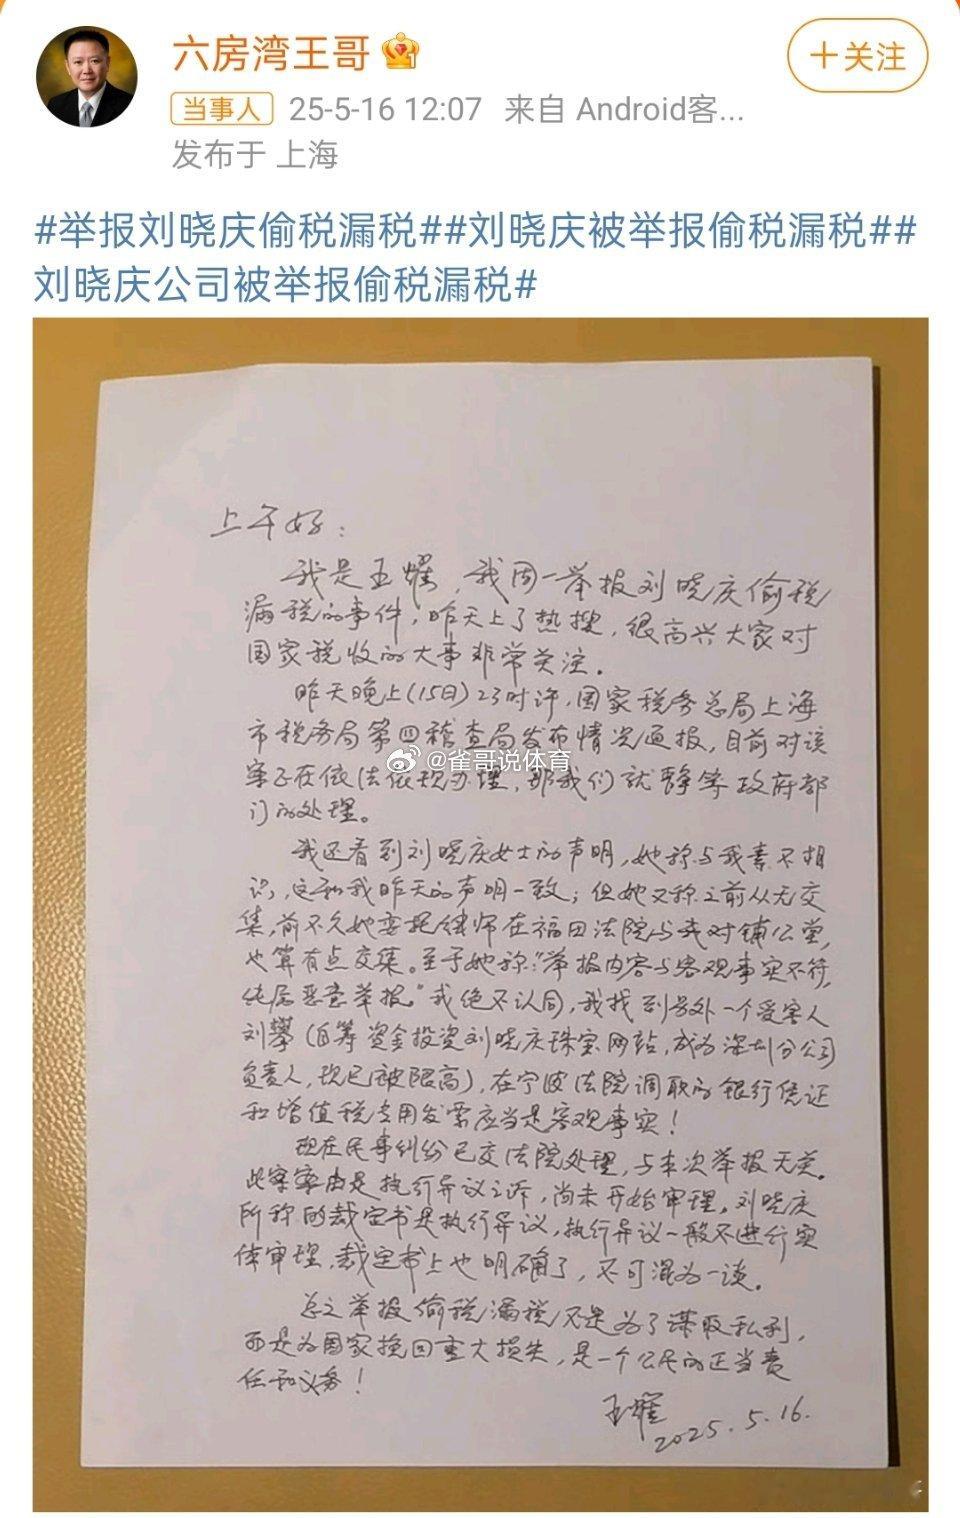 六房湾王哥
+关注
当事人 25-5-16 12:07 来自 Android客...
发布于 上海
#举报刘晓庆偷税漏税##刘晓庆被举报偷税漏税##
刘晓庆公司被举报偷税漏税#
上午好：
我是王耀，我周一举报刘晓庆偷税
漏税的事件，昨天上了热搜，很高兴大家对
国家税收的大事非常关注。
昨天晚上(15日)23时许，国家税务总局上海
市税务局第四稽查局发布情况通报，目前对该
案子在依法依规办理，那我们就静等政府部
门的处理。
我还看到刘晓庆女士的声明，她称与我素不相
识，这和我昨天的声明一致；但她又称之前从无交
集，前不久她委托律师在福田法院与我对铺公堂，
也算有点交集。至于她称："举报内容与客观事实不符，
纯属恶意举报。"我绝不认同，我找到另外一个受害人
刘攀(自筹资金投资刘晓庆珠宝网站，成为深圳分公司
负责人，现已被限高)，在宁波法院调取的银行凭证
和增值税专用发票应当是客观事实！
现在民事纠纷已交法院处理，与本次举报无关。
此案案由是执行异议之诉，尚未开始审理。刘晓庆
所称的裁定书是执行异议，执行异议一般不进行实
体审理，裁定书上也明确了，不可混为一谈。
总之举报偷税漏税不是为了谋取私利，
而是为国家挽回重大损失，是一个公民的正当责
任和义务！
王耀
2025.5.16.
@雀哥说体育